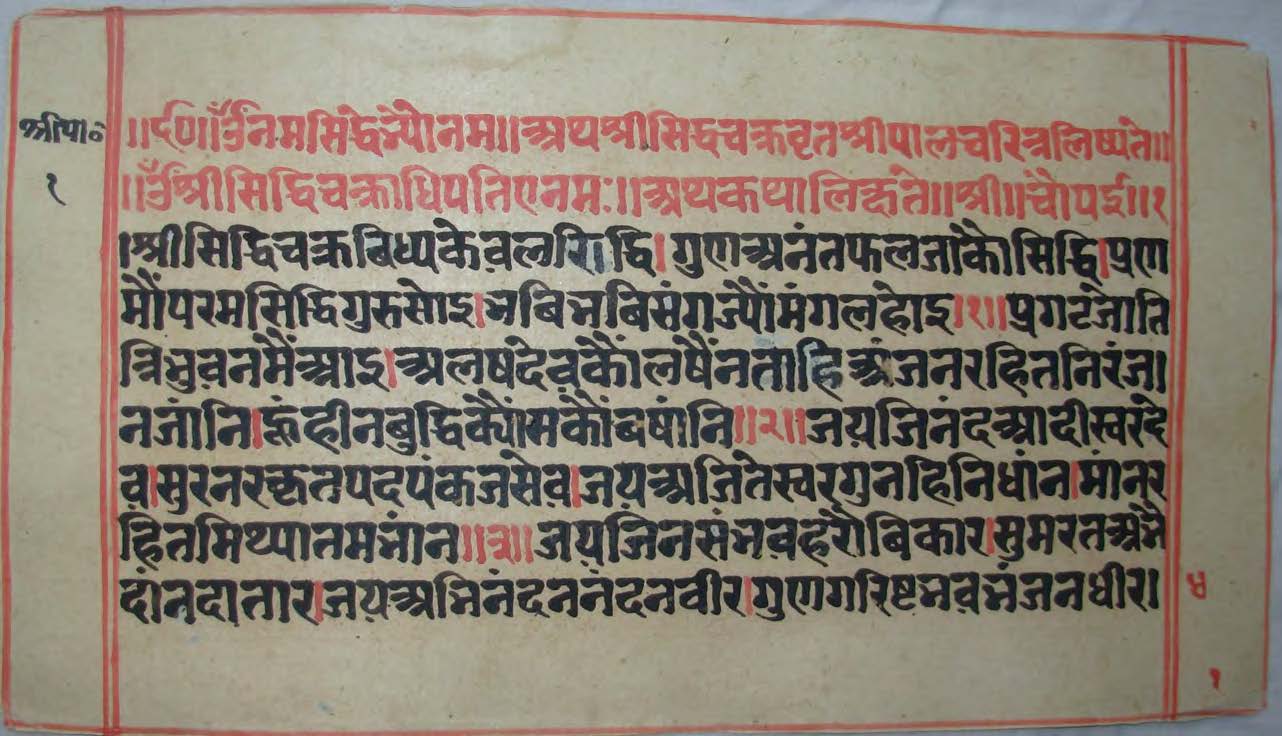 श्रीपा॰
१
॥र्द०॥ॐनमसिद्धेभ्योनम॥अथश्रीसिद्धचक्रवृतश्रीपालचरित्रलिष्यते॥
॥ॐश्रीसिद्धिचक्राधिपतिएनमः॥अथकथालिष्यते॥श्री॥चौपई॥१
।श्रीसिद्धिचक्रबिध्यकेवलरिद्धि।गुणअनंतफलजांकोसिद्धि।प्रण
मौंपरमसिद्धिगुरुसोइ।भबिभबिसंगज्यौंमंगलहोइ।१॥प्रगटजोति
त्रिभुवनमैंआइ।अलषदेवकौंलषैंनताहिअंजनरहितनिरंज।
नजांनि।हूंहीनबुद्धिक्यौंसकौंबषांनि॥२॥जयजिनंदआदीस्वरदे
व।सुरनरकृतपदपंकजसेव।जयअजितेस्वरगुनहिनिधांन।मांनर
हितमिथ्यातमभांन॥३॥जयजिनसंभवहरौबिकार।सुमरतअभै
दांनदातार।जयअभिनंदननंदनवीर।गुणगरिष्टभवभंजनधीर।
४
१